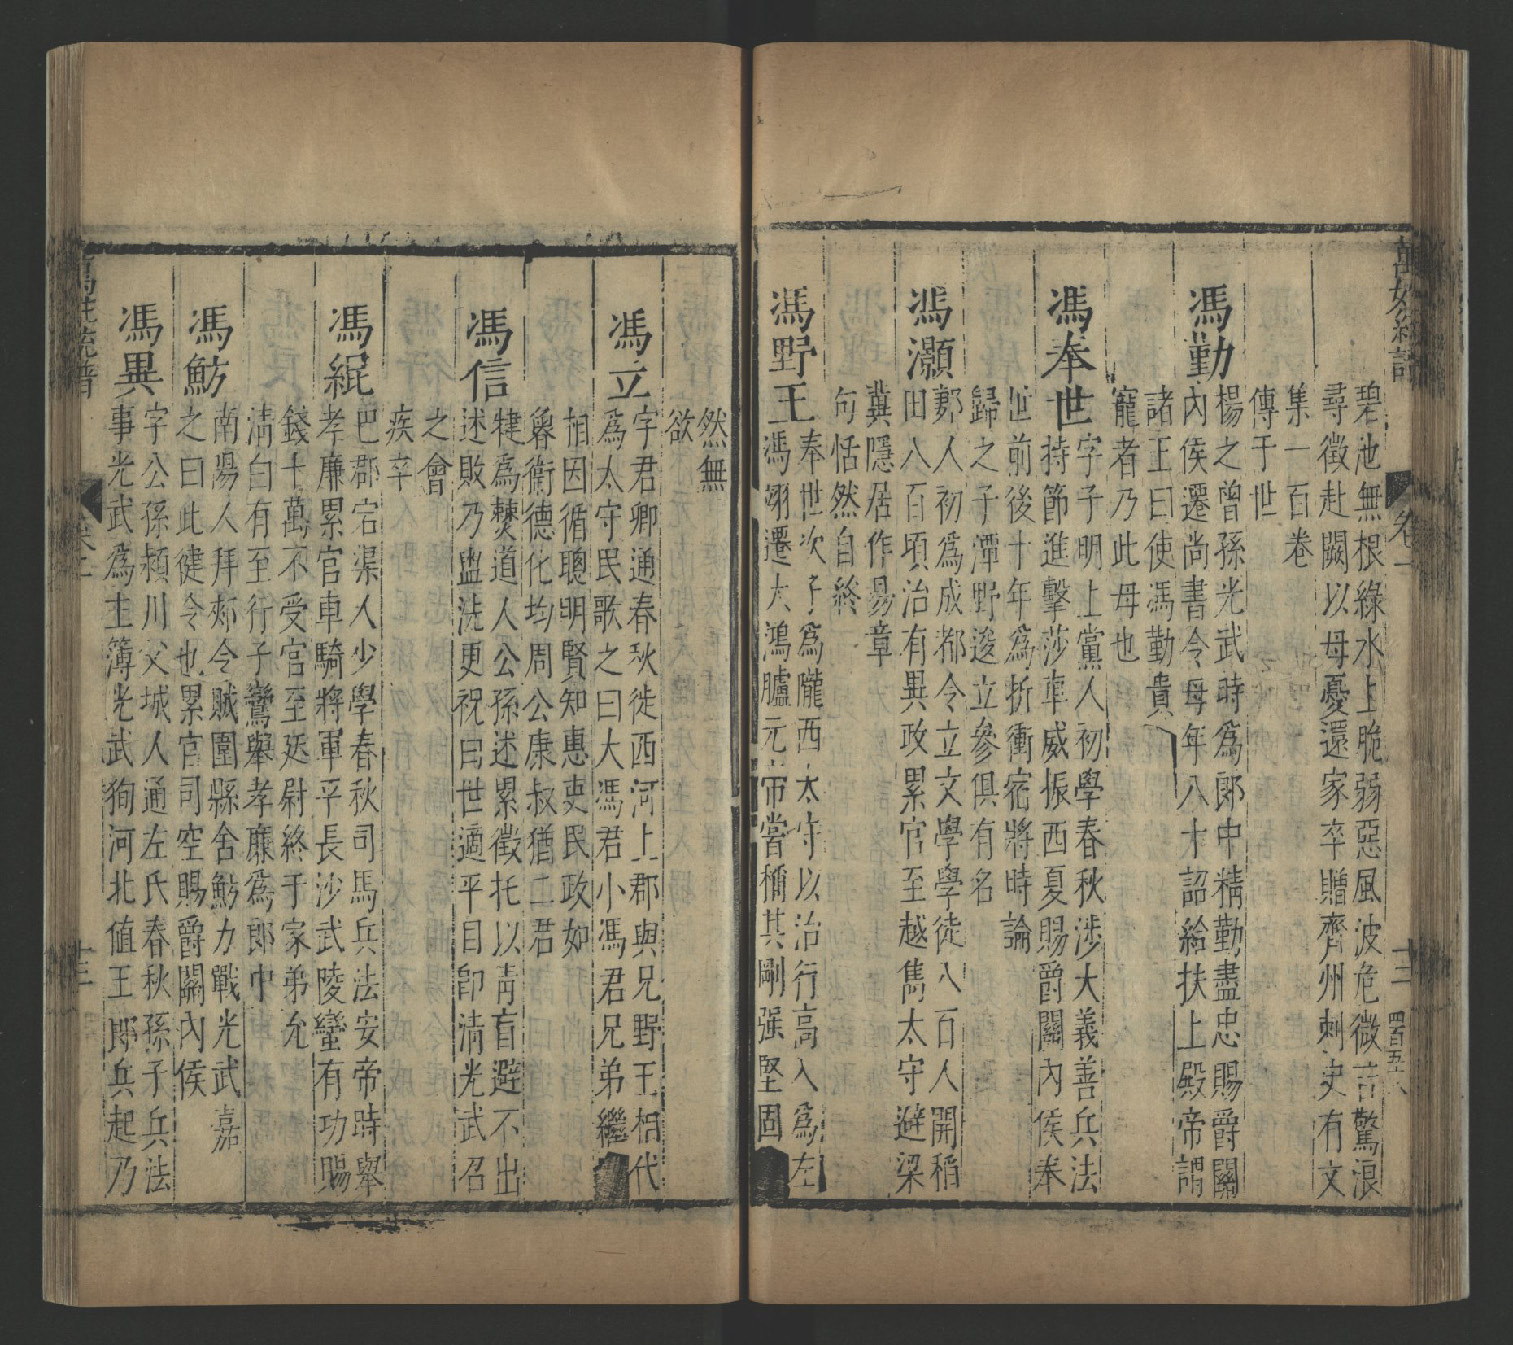 萬姓統譜 卷一 十二 四百五
碧池無根綠水上脆弱惡風波危微言驚浪
尋徵赴闕以母憂還家卒贈齊州刺史有文
集一百卷
傳于世
馮勤
楊之曾孫光武時爲郎中精勤盡忠賜爵關
內侯遷尚書令母年八十詔給扶上殿帝謂
諸王曰使馮勤貴
寵者乃此母也
馮奉世
字子明上黨人初學春秋涉大義善兵法
持節進擊莎車威振西夏賜爵關內侯奉
世前後十年爲折衝宿將時論
歸之子潭野逡立參俱有名
馮灝
郪人初爲成都令立文學學徒八百人開稻
田八百頃治有異政累官至越雋太守避梁
冀隱居作易章
句恬然自終
馮野王
奉世次子爲隴西太守以治行高入爲左
馮翊遷大鴻臚元帝嘗稱其剛强堅固
然無
欲
馮立
字君卿通春秋徙西河上郡與兄野王相代
爲太守民歌之曰大馮君小馮君兄弟繼
相因循聰明賢知惠吏民政如
魯衛德化均周公康叔猶二君
馮信
犍爲僰道人公孫述累徵托以靑盲避不出
述敗乃盥洗更視曰世適平目卽淸光武召
之會
疾卒
馮緄
巴郡宕渠人少學春秋司馬兵法安帝時舉
孝廉累官車騎將軍平長沙武陵蠻有功賜
錢十萬不受官至廷尉終于家弟允
淸白有至行子鸞舉孝廉爲郎中
馮魴
南陽人拜郟令賊圍縣舍魴力戰光武嘉
之曰此健令也累官司空賜爵關內侯
馮異
字公孫潁川父城人通左氏春秋孫子兵法
事光武爲主簿光武狥河北值王郎兵起乃
萬姓統譜 卷一 十三